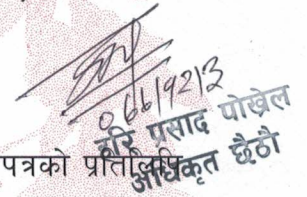 ०६६।१२।३
हरि प्रसाद पोखरेल
अधिकृत छैठौ
पत्रको प्रतिलिपि